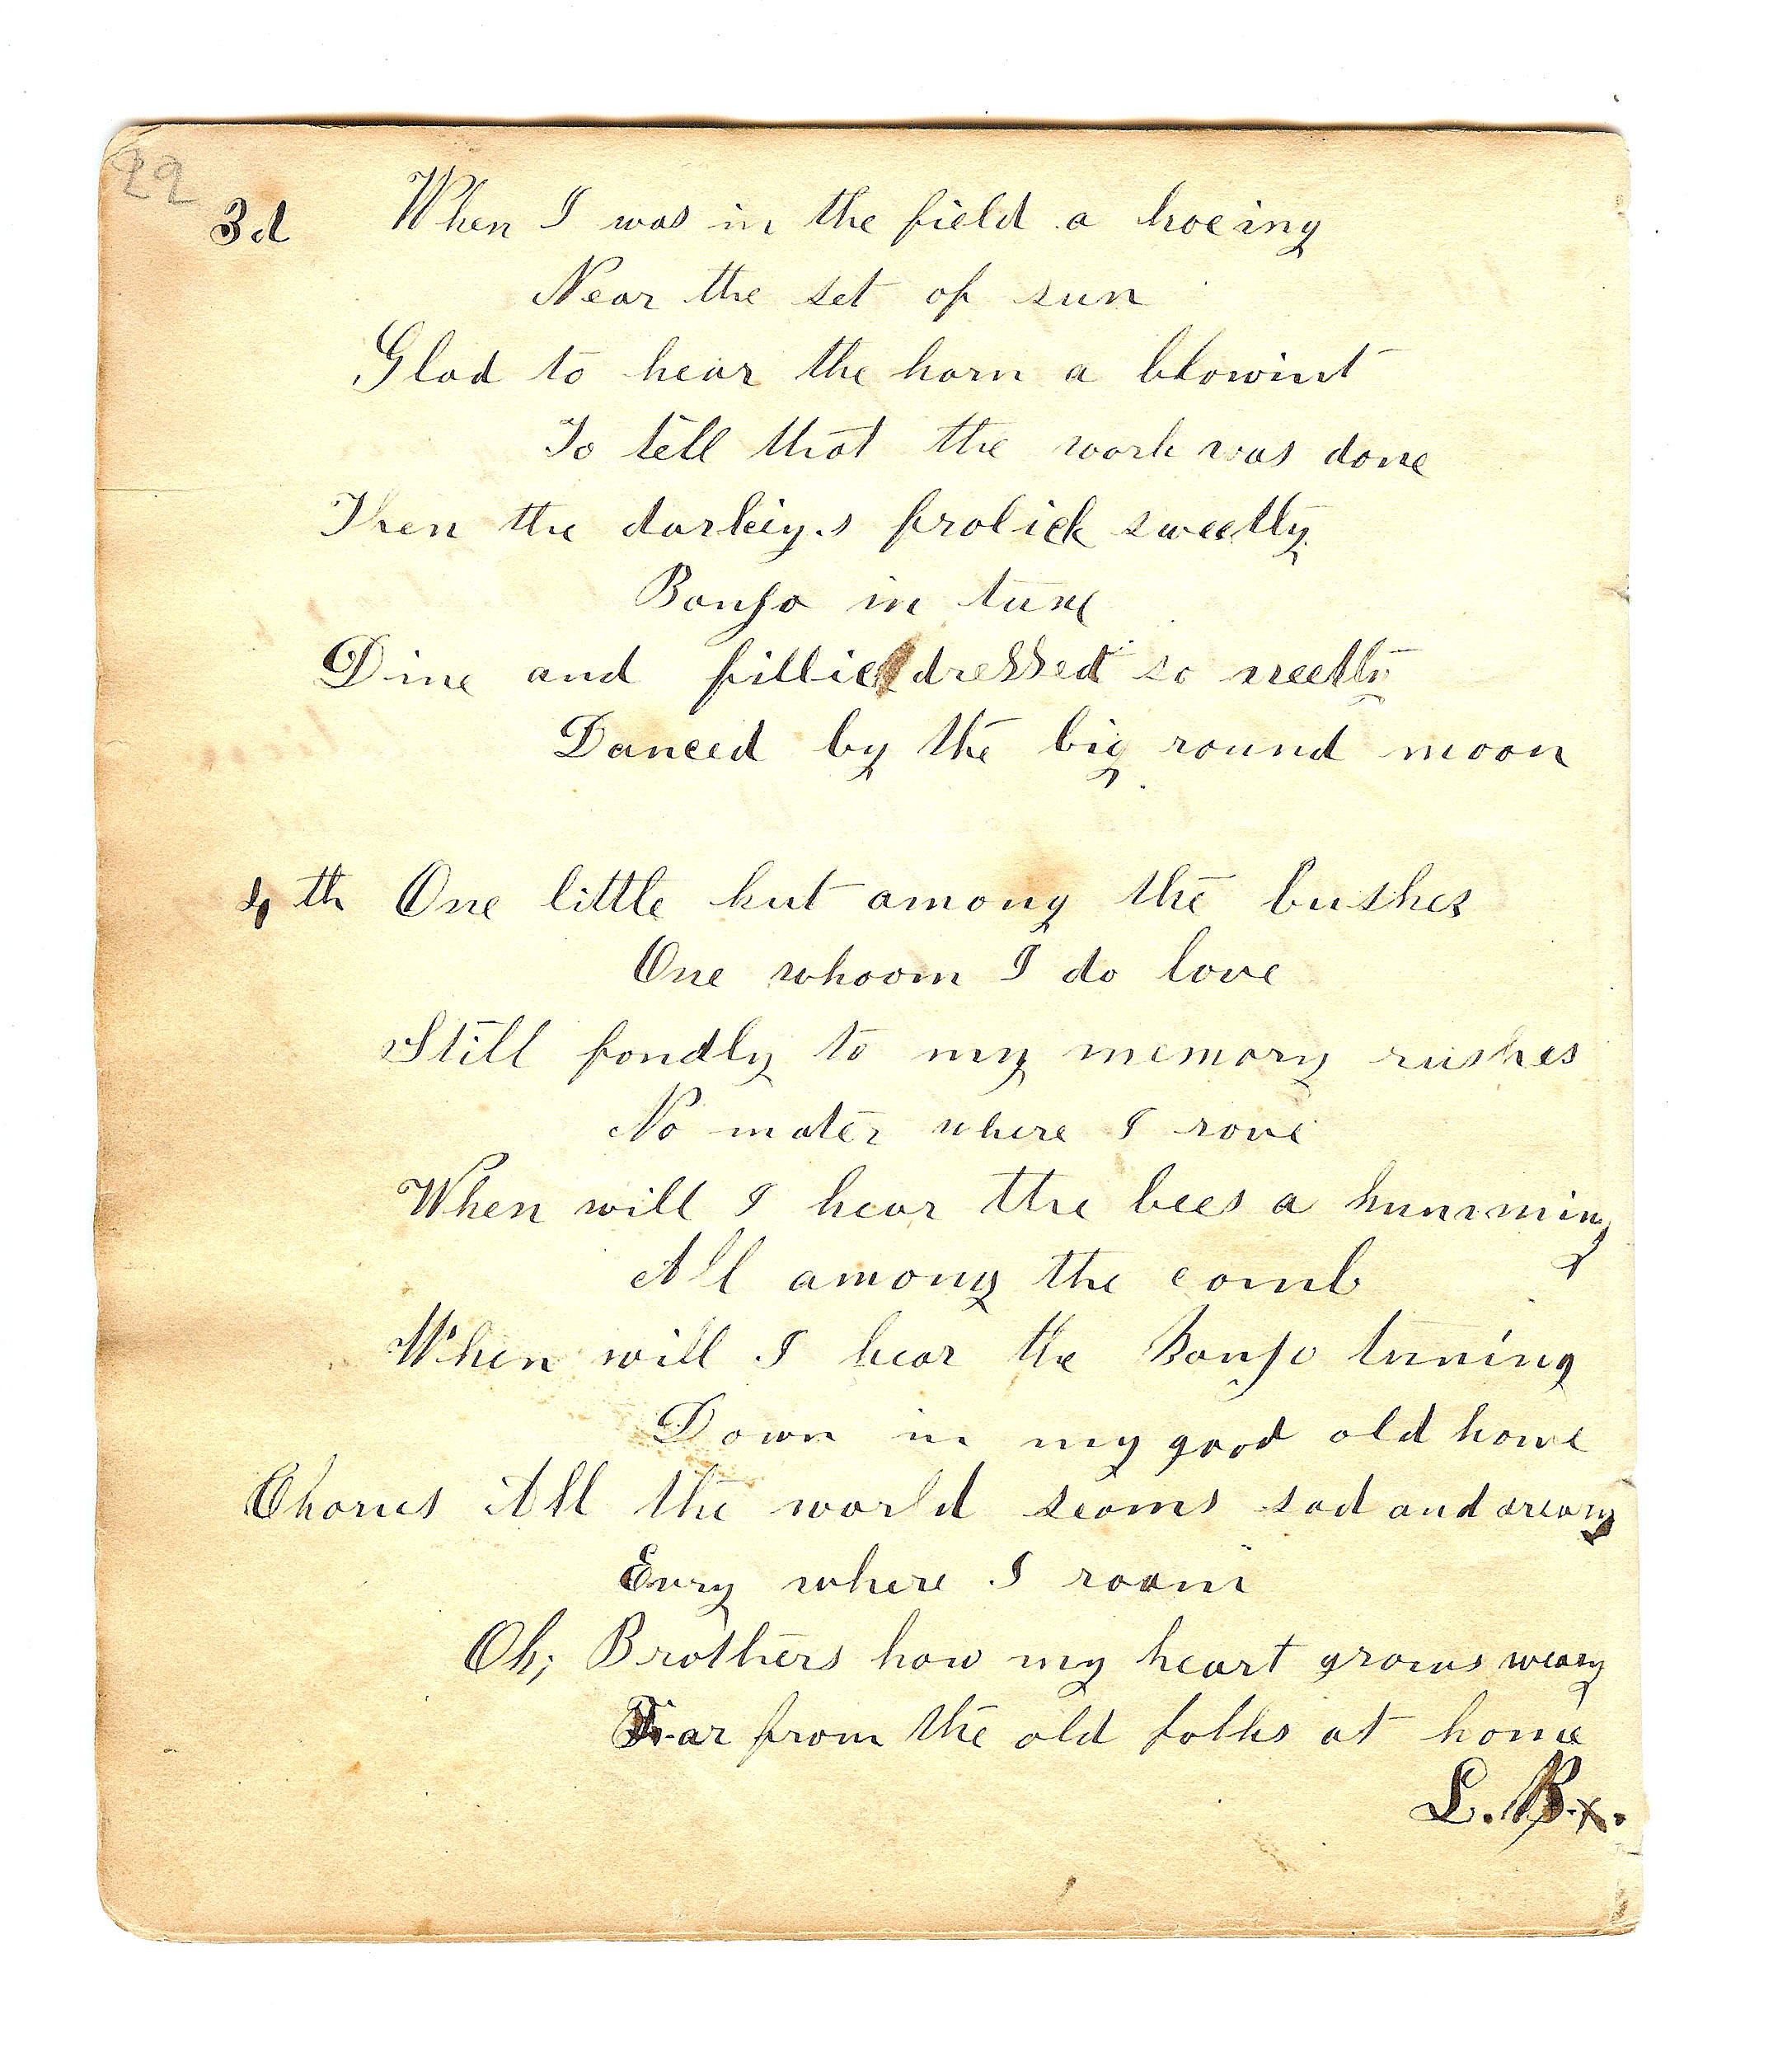 22
3d When I was in the field a hoeing
Near the set of sun
Glad to hear the horn a blowint
To tell that the work was done
Then the darkeys frolick sweetly
Banjo in tune
Dine and fillie dressed so neetly
Danced by the big round moon
4th One little hut among the bushes
One whoom I do love
Still fondly to my memory rushes
No mater where I rove
When will I hear the bees a humming
All among the comb
When will I hear the Banjo tuning
Down in my good old home
Chorus All the world seams sad and dreary
Evry where I roam
Oh; Brothers how my heart grows weary
Far from the old folks at home
L. B.x.